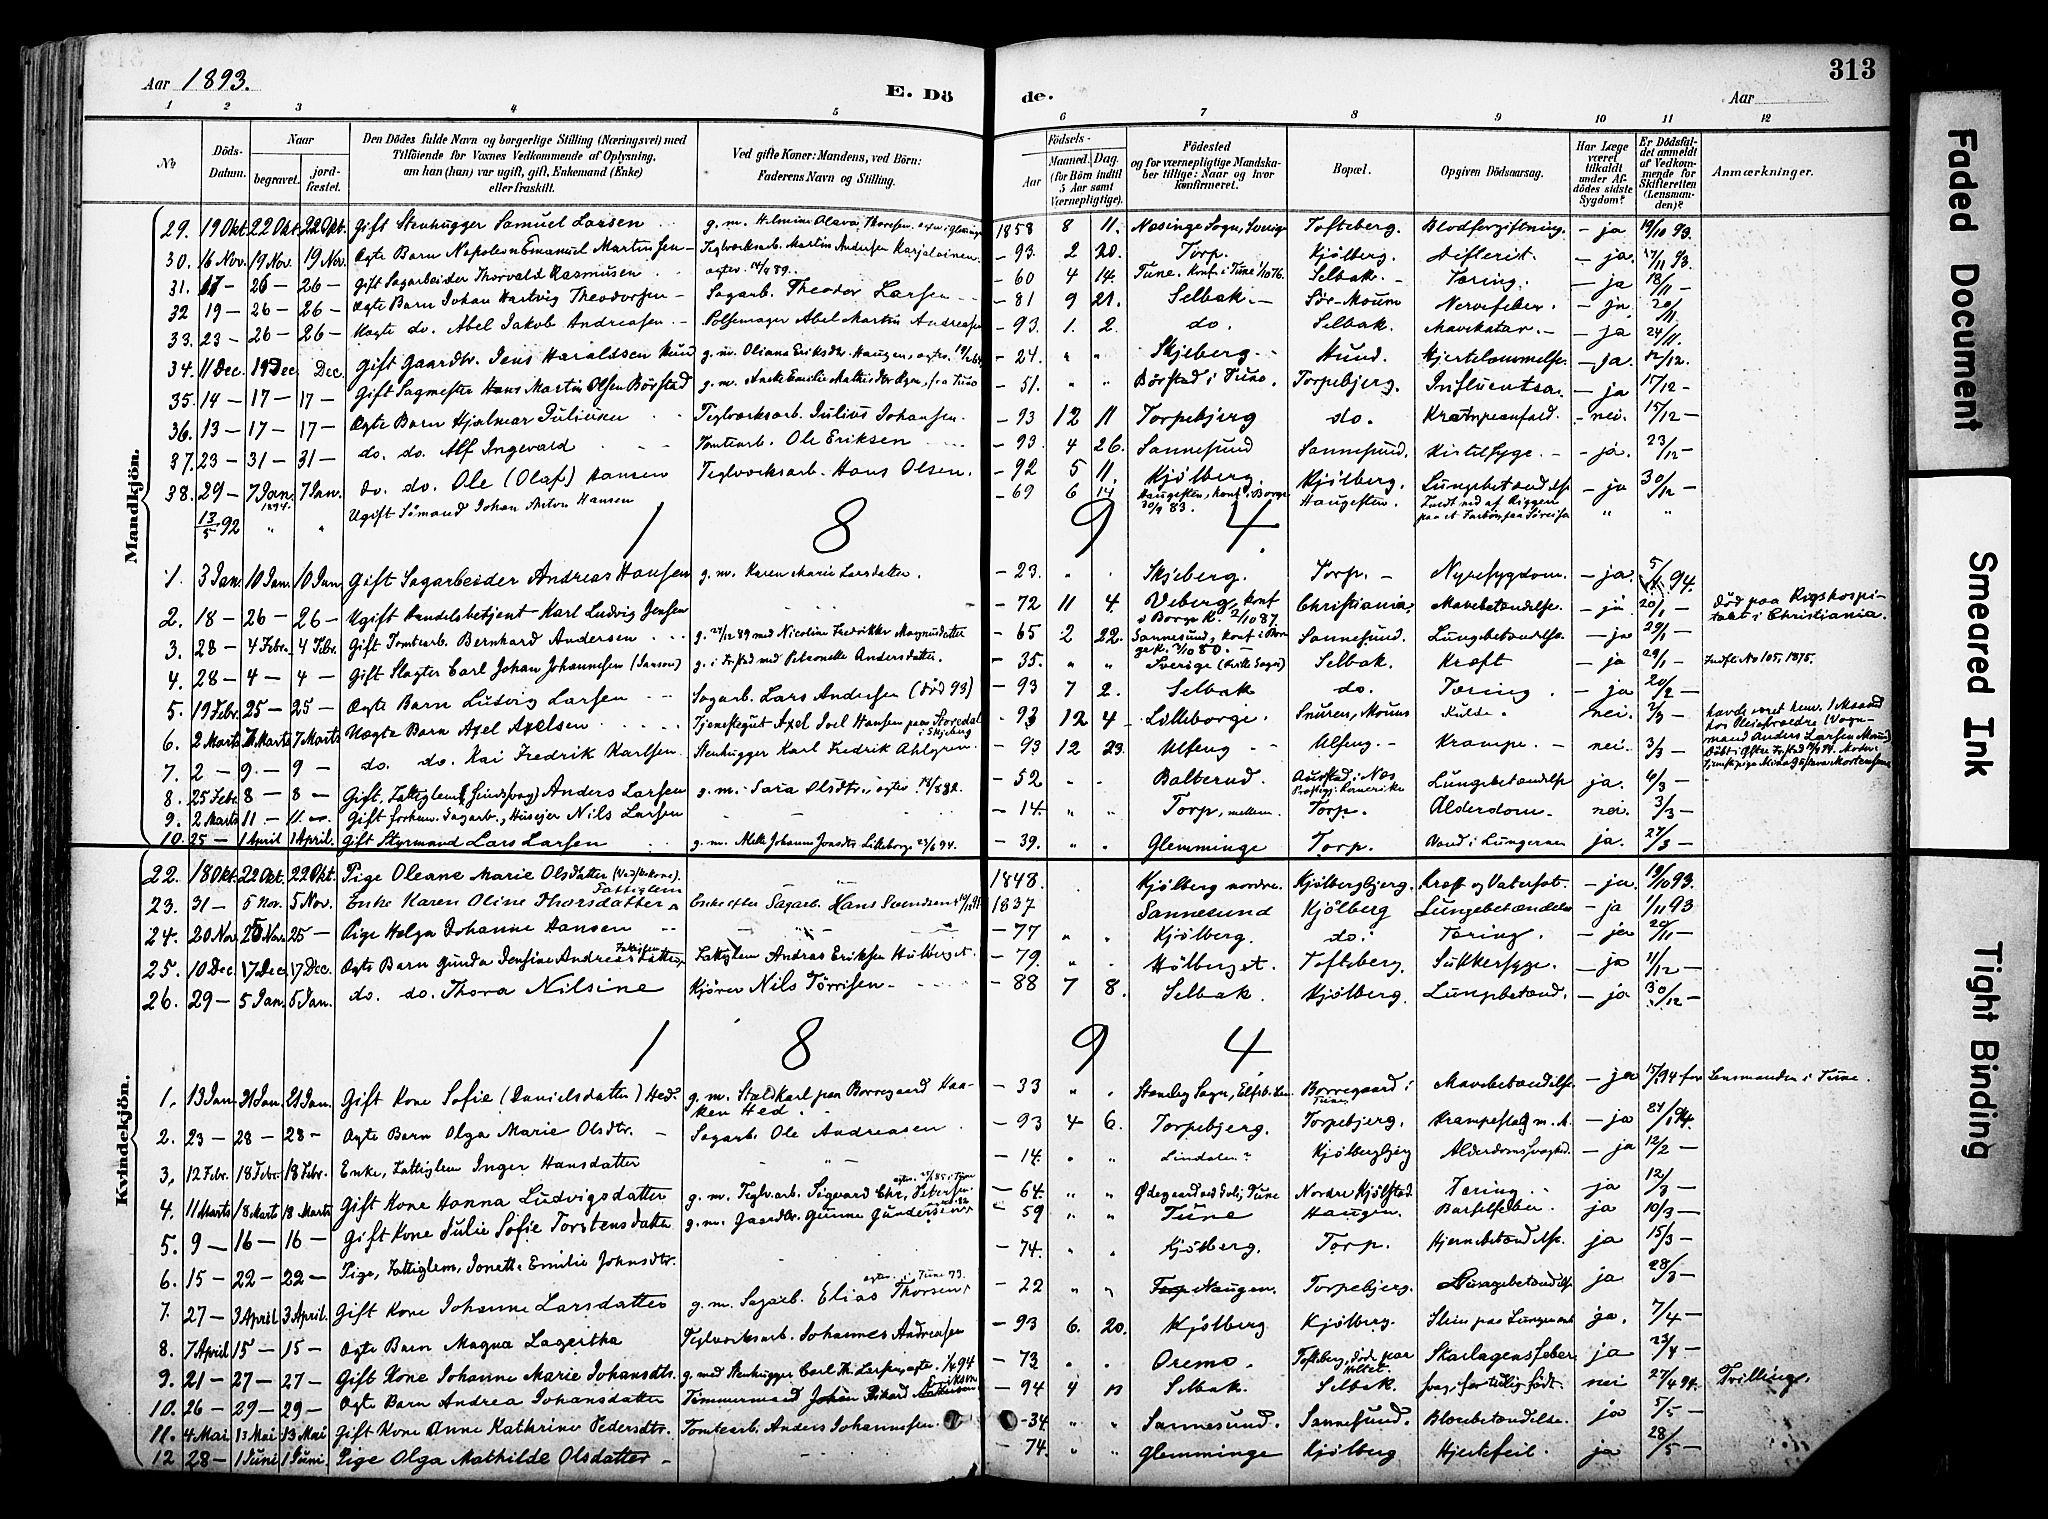 Aar 1893.
E. Döde.
Aar
313
1 2 3 4 5 6 7 8 9 10 11 12
No
Döds-Datum.
Naar
begravet.
jordfæstet.
Den Dödes fulde Navn og borgerlige Stilling (Næringsvei) med
Tilföiende for Voxnes Vedkommende af Oplysning,
om han (hun) var ugift, gift, Enkemand (Enke)
eller fraskilt.
Ved gifte Koner: Mandens, ved Börn:
Faderens Navn og Stilling.
Födsels-
Aar
Maaned. Dag.
(for Börn indtil
5 Aar samt
Værnepligtige).
Födested
og for værnepligtige Mandskaber tillige: Naar og hvor
konfirmeret.
Bopæl.
Opgiven Dödsaarsag.
Har Læge været tilkaldt under Afdödes sidste Sygdom?
Er Dödsfaldet anmeldt af Vedkommende for Skifteretten (Lensmanden)?
Anmærkninger.
Mandkjön.
29. 19 Okt. 22 Okt. 22 Okt. Gift Stenhugger Samuel Larsen 1858 8 11. Næsinge Sogn, Sverige Tofteberg. Blodforgiftning. – ja 19/10 93.
30. 16 Nov. 19 Nov. 19 Nov. Ægte Barn Napoleon Emanuel Martinsen Teglværksarb. Martin Andersen Karjalainen – 93. 2 20. Torp. Kjölberg. Difterit. – ja. 17/11 93.
31. 17 – 26 – 26 – Gift Sagarbeider Thorvald Rasmusen – 60 4 14. Tune. konf. i Tune 1/10 76. Selbak. Tæring. – ja 18/11 –
32 19 – 26 – 26 – Ægte Barn Johan Hartvig Theodorsen Sagarb. Theodor Larsen – 81 9 21. Selbak. Sör-Moum Nervefeber. – ja. 20/11
33. 23 – 26 – 26 – Uægte do. Abel Jakob Andreasen Pölsemager Abel Martin Andreasen – 93. 1. 2. do. Selbak. Mavekatar. – ja 24/11.
34. 11 Dec. 19 Dec. Dec. Gift Gaardbr. Jens Haraldsen Hund g. m. Oliana Eriksdtr. Haugen – 24. " " Skjeberg. Hund. Hjertelammelse. – ja. 12/12.
35. 14 – 17 – 17 – Gift Sagmester Hans Martin Olsen Börstad – 51. " " Börstad i Tune. Torpebjerg. Influentsa. – ja 17/12 –
36. 13 – 17 – 17 – Ægte Barn Hjalmar Julius Teglværksarb. Julius Johansen. – 93 12 11 Torpebjerg do. Krampeanfald. – nei. 15/12 –
37. 23 – 31 – 31 – do. do. Alf Ingevald Tomtearb. Ole Eriksen – 93. 4 26. Sannesund Sannesund. Kirtelsyge. – ja. 23/12 –
38. 29 – 7 Jan. 1894. 7 Jan. do. do. Ole (Olaf) Hansen Teglværksarb. Hans Olsen. – 92 5 11. Kjölberg. Kjölberg. Lungebetændelse – ja 30/12 –
13/5 92 " " Ugift Sömand Johan Anton Hansen – 69 6 14 Haugesten, konf. i Borge 30/9 83. Haugesten. Faldt ned af Riggen " "
1 8 9 4.
1. 3 Jan. 10 Jan. 10 Jan Gift Sagarbeider Andreas Hansen g. m. Karen Marie Larsdatter. – 23. " . Skjeberg. Torp. – Nyresygdom. – ja. 5/1 94.
2. 18 – 26 – 26 – Ugift Handelsbetjent Karl Ludvig Jensen – 72 11 4 Viberg, konf. i Borge K. 2/10 87. Christiania. Mavebetændelse. – ja 20/1 – Död paa Rigshospitalet i Christiania.
3. 28 – 4 Febr. 4 Febr. Gift Tomtearb. Bernhard Andersen g. 27/12 89 med Nicoline Fredrikke Magnusdatter – 65 2 22. Sannesund, konf. i Borge K. 3/10 80. – Sannesund. Lungebetændelse – ja 29/1 –
4. 28 – 4 – 4 – Gift Slagter Carl Johan Johannesen g. i Fr.stad med Petronelle Andersdatter. – 35. " " Sverige Selbak. Kræft – ja 29/1 – Indfl. No 105. 1875.
5. 19 Febr. 25 – 25 – Ægte Barn Ludvig Larsen Sagarb. Lars Andersen (död 93) – 93 7 2. Selbak do. Tæring. – ja 20/2 –
6. 2 Marts 7 Marts 7 Marts Uægte Barn Axel Axelsen Tjenestegut Axel Joel Hansen paa Storedal i Skjeberg – 93 12 4 Lilleborge. Snuren, Moum Kulde. nei. 2/3 –
7. 2 – 9 – 9 – do. do. Kai Fredrik Karlsen. Stenhugger Karl Fredrik Ahlgren. – 93 12 23. Ulfeng – Ulfeng. – Krampe. – nei. 3/3 –
8. 25 Febr. 8 – 8 – Gift, Fattiglem (Sindssvag) Anders Larsen g. m. Sara Olsdtr. – 52 " " Balterud. Lungebetændelse ja. 4/3 –
9. 2 Marts 11 – 11 – Gift forhenv. Sagarb., Huseier Nils Larsen – 14. " " Torp, mellem. Torp. Alderdom. nei. 3/3 –
10. 25 – 1 April 1 April. Gift Styrmand Lars Larsen – 39. " " Glemminge Torp. Vand i Lungerne ja. 27/3 –
Kvindekjön.
22. 18 Okt. 22 Okt. 22 Okt. Pige Oleane Marie Olsdatter (Vaskekone). 1848. Kjölberg nordre. Kjölbergbjerg. Kræft og Vatersot. – ja. 19/10 93.
23. 31 – 5 Nov. 5 Nov. Enke Karen Oline Thorsdatter Fattiglem Enke efter Sagarb. Hans Svendsen 1837 Sannesund Kjölberg Lungebetændelse – ja 1/11 93
24. 20 Nov. 25 Nov. 25 – Pige Helga Johanne Hansen – 77 " " Kjölberg. do. Tæring. – ja 20/11 –
25. 10 Dec. 17 Dec. 17 Dec. Ægte Barn Gunda Jensine Andreasdatter Fattiglem Andreas Eriksen Hölberget. – 79. " . Hölberget. Tofteberg. Sukkersyge. – ja 11/12 –
26. 29 – 5 Jan. 5 Jan. do. do. Thora Nilsine Kjörer Nils Törrisen – 88 7 8. Selbak. Kjölberg. Lungebetænd. – ja 30/12 –
1 8 9 4
1. 13 Jan. 21 Jan. 21 Jan. Gift Kone Sofie (Danielsdatter) Hed. g. m. Staldkarl paa Borregaard Haaken Hed. – 33 " . Borregaard i Tune. Mavebetændelse – ja 15/1 94 for Lensmanden i Tune.
2. 23 – 28 – 28 – Ægte Barn Olga Marie Olsdtr. – Sagarb. Ole Andreasen – 93 4 6. Torpebjerg. Torpebjerg. Krampeslag m. A. – ja 24/1 94.
3, 12 Febr. 18 Febr. 18 Febr. Enke, Fattiglem Inger Hansdatter – 14. " " Lindalen Kjölbergbjerg Alderdomssvaghed. – ja 12/2 –
4. 11 Marts 18 Marts 18 Marts Gift Kone Hanna Ludvigsdatter g. m. Teglv.arb. Sigvard Chr. Petersen – 64. " " Nordre Kjölstad. Tæring. – ja 12/3 –
5. 9 – 16 – 16 – Gift Kone Julie Sofie Torstensdatter g. m. Gaardbr. Gunne Gundersen – 59 " " Tune Haugen. Barselfeber. ja 10/3 –
6. 15 – 22 – 22 – Pige, Fattiglem, Jonette Emilie Johnsdtr. – 74. " " Kjölberg. Torp. Hjernebetændelse. ja 15/3 –
7. 27 – 3 April 3 April. Gift Kone Johanne Larsdatter g. m. Sagarb. Elias Thorsen – 22 " " Haugen. Torpebjerg. Lungebetændelse ja 28/3 –
8. 7 April 15 – 15 – Ægte Barn Magna Lagertha Teglværksarb. Johannes Andreasen – 93 6. 20. Kjölberg Kjölberg. Slim paa Lungerne ja. 7/4 –
9. 21 – 27 – 27 – Gift Kone Johanne Marie Johansdtr. g. med Stenhugger Carl Th. – 73 " . Oremo. Tofteberg, döde paa Holtet. Skarlagensfeber ja 23/4 –
10. 26 – 29 – 29 – Ægte Barn Andrea Johansdatter Tømmermand Johan Eriksen – 94 4 Selbak. Selbak. svag, for tidlig födt. nei 27/4 94. Tvilling.
11. 4 Mai 13 Mai 13 Mai Gift Kone Anne Kathrine Pedersdtr. Tomtearb. Anders Johannesen. – 34 " " Sannesund. Sannesund. Blærebetændelse. ja 5/5 –
12 28 – 1 Juni 1 Juni Pige Olga Mathilde Olsdatter – – 74. " " Glemminge Kjölberg Hjertefeil. ja 28/5 –
Faded Document
Smeared Ink
Tight Binding